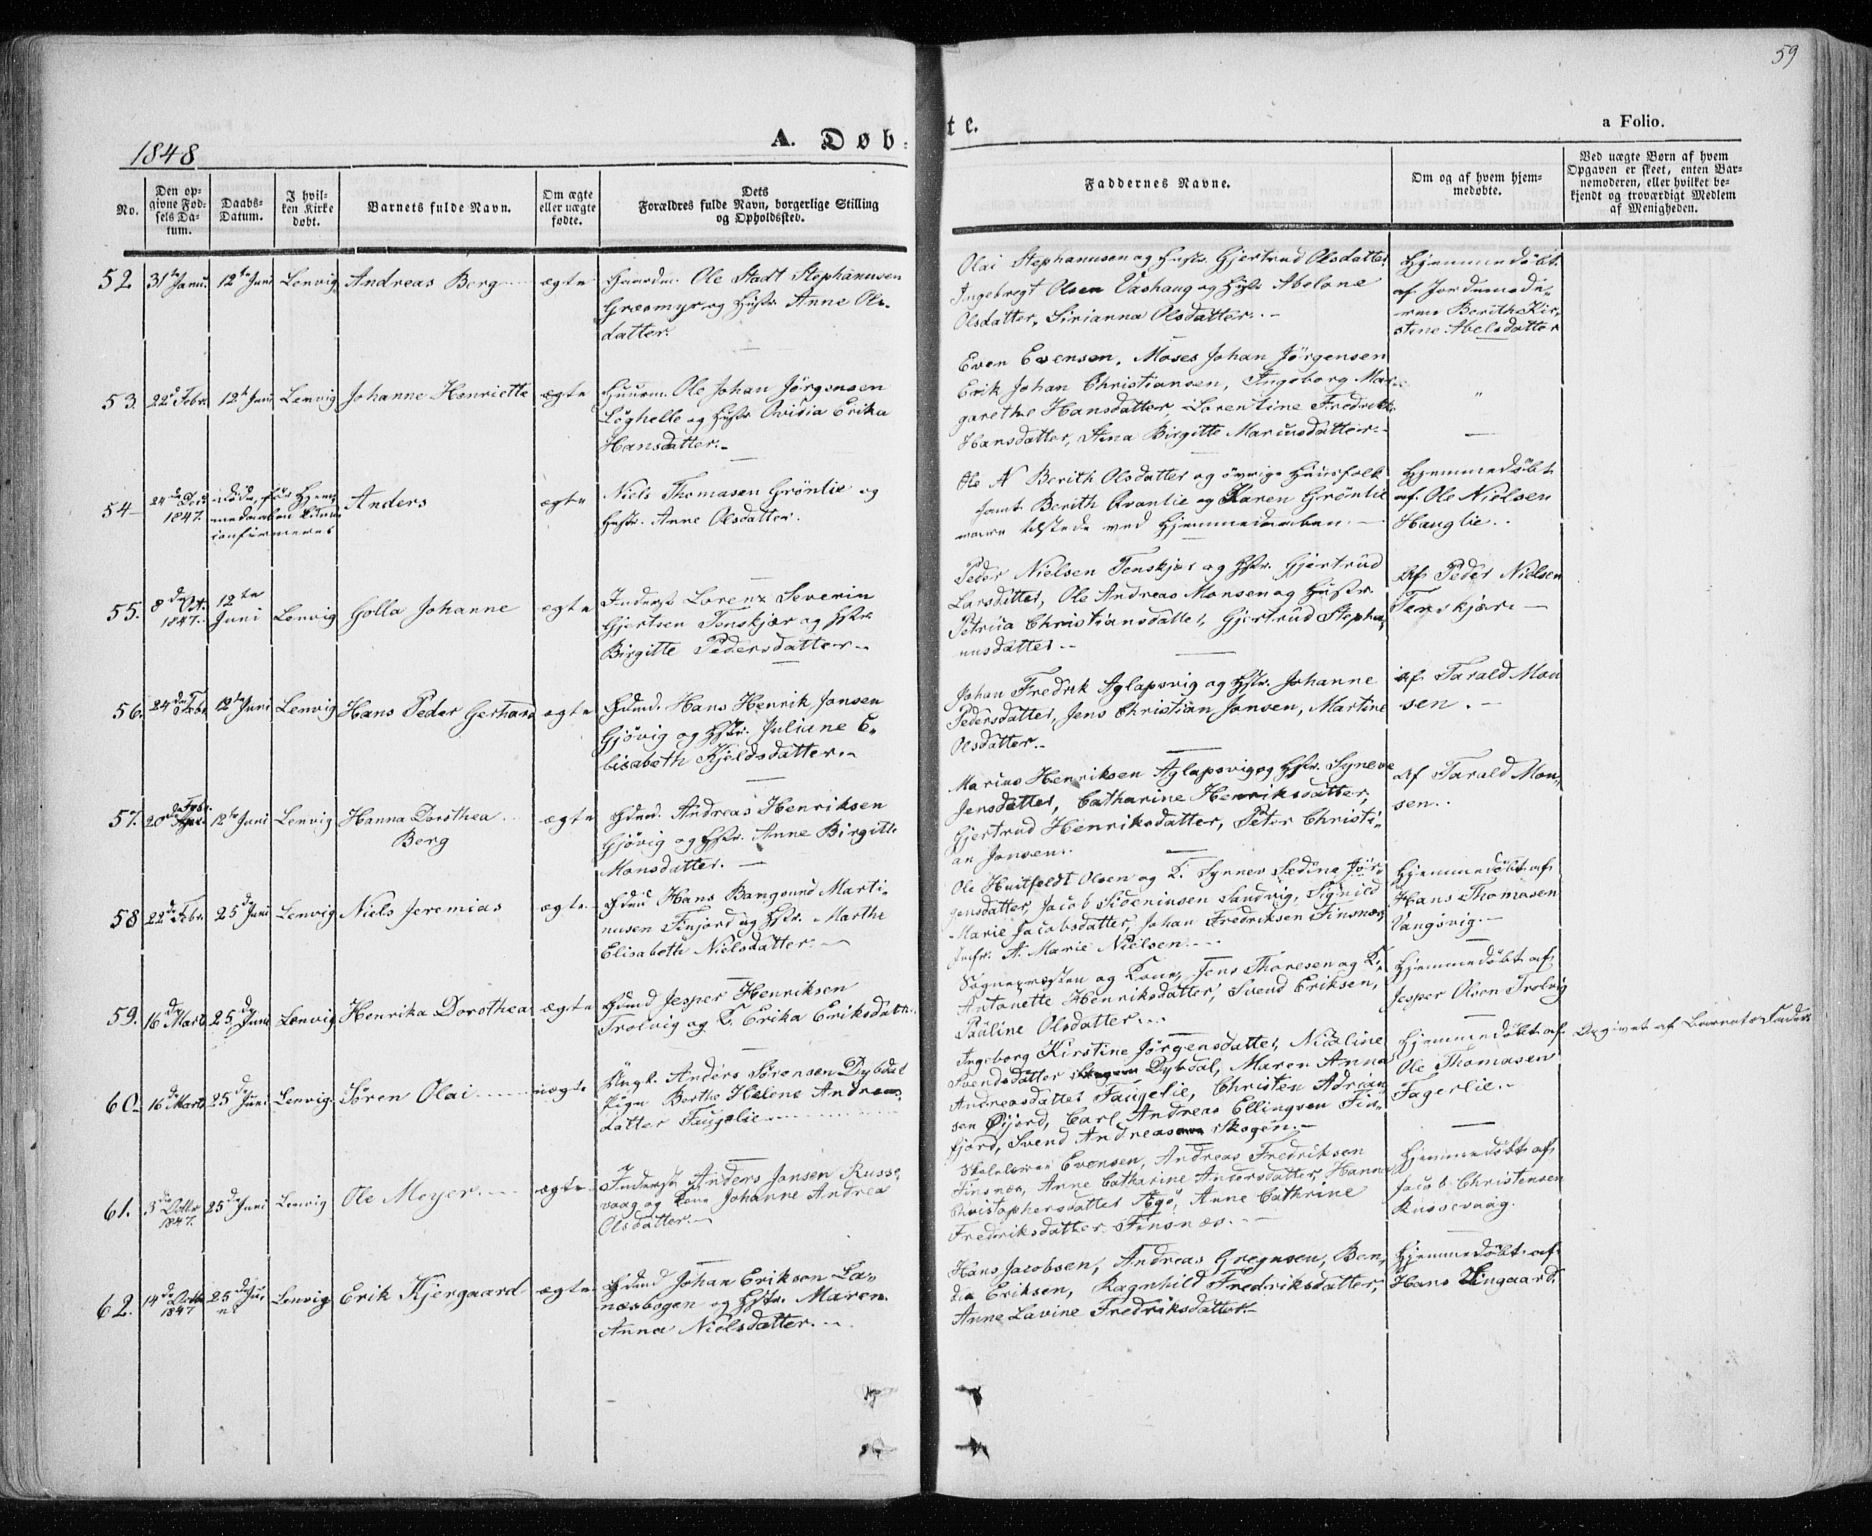 59
1848
A. Døb-
te.
a Folio.
No.
Den op-
givne Fød-
sels Da-
tum.
Daabs-
Datum.
I hvil-
ken Kirke
døbt.
Barnets fulde Navn.
Om ægte
eller uægte
fødte.
Dets
Forældres fulde Navn, borgerlige Stilling
og Opholdssted.
Faddernes Navne.
Om og af hvem hjem-
medøbte.
Ved uægte Børn af hvem
Opgaven er skeet, enten Bar-
nemoderen, eller hvilket be-
kjendt og troværdigt Medlem
af Menigheden.
52 31te Janu. 12te Juni Lenvig Andreas Berg ægte
Ole Stadt Stephanusen
Græsmyr og Hustr. Anne Ols-
datter.
Olai Stephanusen og Hustr. Gjertrud Olsdatter
Ingebregt Olsen Vashaug og Hustr Abelone
Olsdatter, Sirianna Olsdatter.
Hjemmedøbt
af Jordemode-
ren Berith Kir-
stine Abelsdatter
53. 22de Febr. 12te Juni Lenvig Johanne Henriette ægte
Huusm. Ole Johan Jörgensen
Löghelle og Hustr Ovidia Erika
Hansdatter.
Even Evensen, Moses Johan Jörgensen
Erik Johan Christiansen, Ingeborg Mar-
garethe Hansdatter, Lorentine Fredrikke
Hansdatter, Stina Birgitte Mariusdatter.
"
54 24de Dec. 1847. döde, før Hjem-
medaaben kunne
confirmeres
Anders ægte
Niels Thomasen Grönlie og
Hustr. Anne Olsdatter.
Ole N Berith Olsdatter og övrige Huusfolk
samt Berith Kvanlie og Karen Grönlie
vare tilstede ved Hjemmedaaben.
Hjemmedöbt
af Ole Nielsen
Hauglie.
55. 8de Oct. 1847. 12te Juni Lenvig Golla Johanne ægte
Inderst Lorenz Severin
Gjertsen Tenskjær og Hstr.
Birgitte Pedersdatter.
Peder Nielsen Tenskjær og Hstr. Gjertrud
Larsdatter, Ole Andreas Monsen og Hustr
Petrica Christiansdatter, Gjertrud Stepha-
nusdatter.
Af Peder Nielsen
Tenskjær.
56. 24de Febr. 12te Juni Lenvig Hans Peder Gerhard ægte
Gdmd. Hans Henrik Jansen
Gjövig og Hstr. Juliane E-
lisabeth Kjeldsdatter.
Johan Fredrik Aglapsvig og Hstr. Johanne
Pedersdatter, Jens Christian Jansen, Martine
Olsdatter.
Af Tarald Mon
sen.
57. 20de Febr. 12te Juni Lenvig Hanna Dorthea
Berg
ægte
Gdmd. Andreas Henriksen
Gjövig og Hstr. Anne Birgitte
Monsdatter.
Marius Henriksen Aglapsvig og Hstr. Syneve
Jensdatter, Catharine Henriksdatter,
Gjertrud Henriksdatter, Peter Christi-
an Jansen.
Af Tarald Mon-
sen.
58 22de Febr. 25de Juni Lenvig Niels Jeremias ægte
Gdmd Hans Bangsund Marti-
nusen Finjord og Hstr. Marthe
Elisabeth Nielsdatter.
Ole Huitfeldt Olsen og K. Synnev Sedine Jör-
gensdatter, Jacob Sideniusen Sandvig, Signild
Marie Jacobsdatter, Johan Fredriksen Finsnæs
Jmfr. A. Marie Nielsen.
Hjemmedöbt af
Hans Thomasen
Vangsvig.
59. 16de Marts 25de Juni Lenvig Henrika Dorothea ægte
Gdmd Jesper Henriksen
Trolvig og K. Erika Eriksdatter.
Sognepræsten og Kone, Jens Thoresen og K.
Antonette Henriksdatter, Svend Eriksen,
Pauline Olsdatter.
Hjemmedöbt af
Jesper Olsen Trolvig
60 16de Marts 25de Juni Lenvig Sören Olai uægte
Ungk. Anders Sörensen Dybdal
Pige Berthe Helene Andreas-
datter Faugelie
Ingeborg Kirstine Jörgensdatter, Nicoline
Svendsdatter Dybdal, Maren Anna
Andreasdatter Faugelie, Christen Adrean
sen Øijord, Carl Andreas Ellingsen Fin-
fjord, Svend Andreas Skogen.
Hjemmedöbt af
Ole Thomasen
Fagerlie.
Opgivet af Barnets Fader
61. 3de Octbr 1847. 25de Juni Lenvig Ole Meyer ægte
Inderst Anders Jansen Russe-
vaag og Kone Johanne Andrea
Olsdatter.
Skolelærer Evensen, Andreas Fredriksen
Finsnæs, Anne Catharine Andersdatter, Hanna
Christophersdatter Agö, Anne Cathrine
Fredriksdatter Finsnæs.
Hjemmedöbt af
Jacob Christensen
Russevaag.
62. 14de Octbr 1847 25de Ju-
ni Lenvig Erik Kjergaard ægte
Gdmd Johan Erikson La-
næsbogen og Hstr. Maren
Anna Nielsdatter.
Hans Jacobsen, Andreas Gregusen, Ben-
dix Eriksen, Ragnhild Fredriksdatter,
Anne Lavine Fredriksdatter.
Hjemmedöbt af
Hans Lingaard.